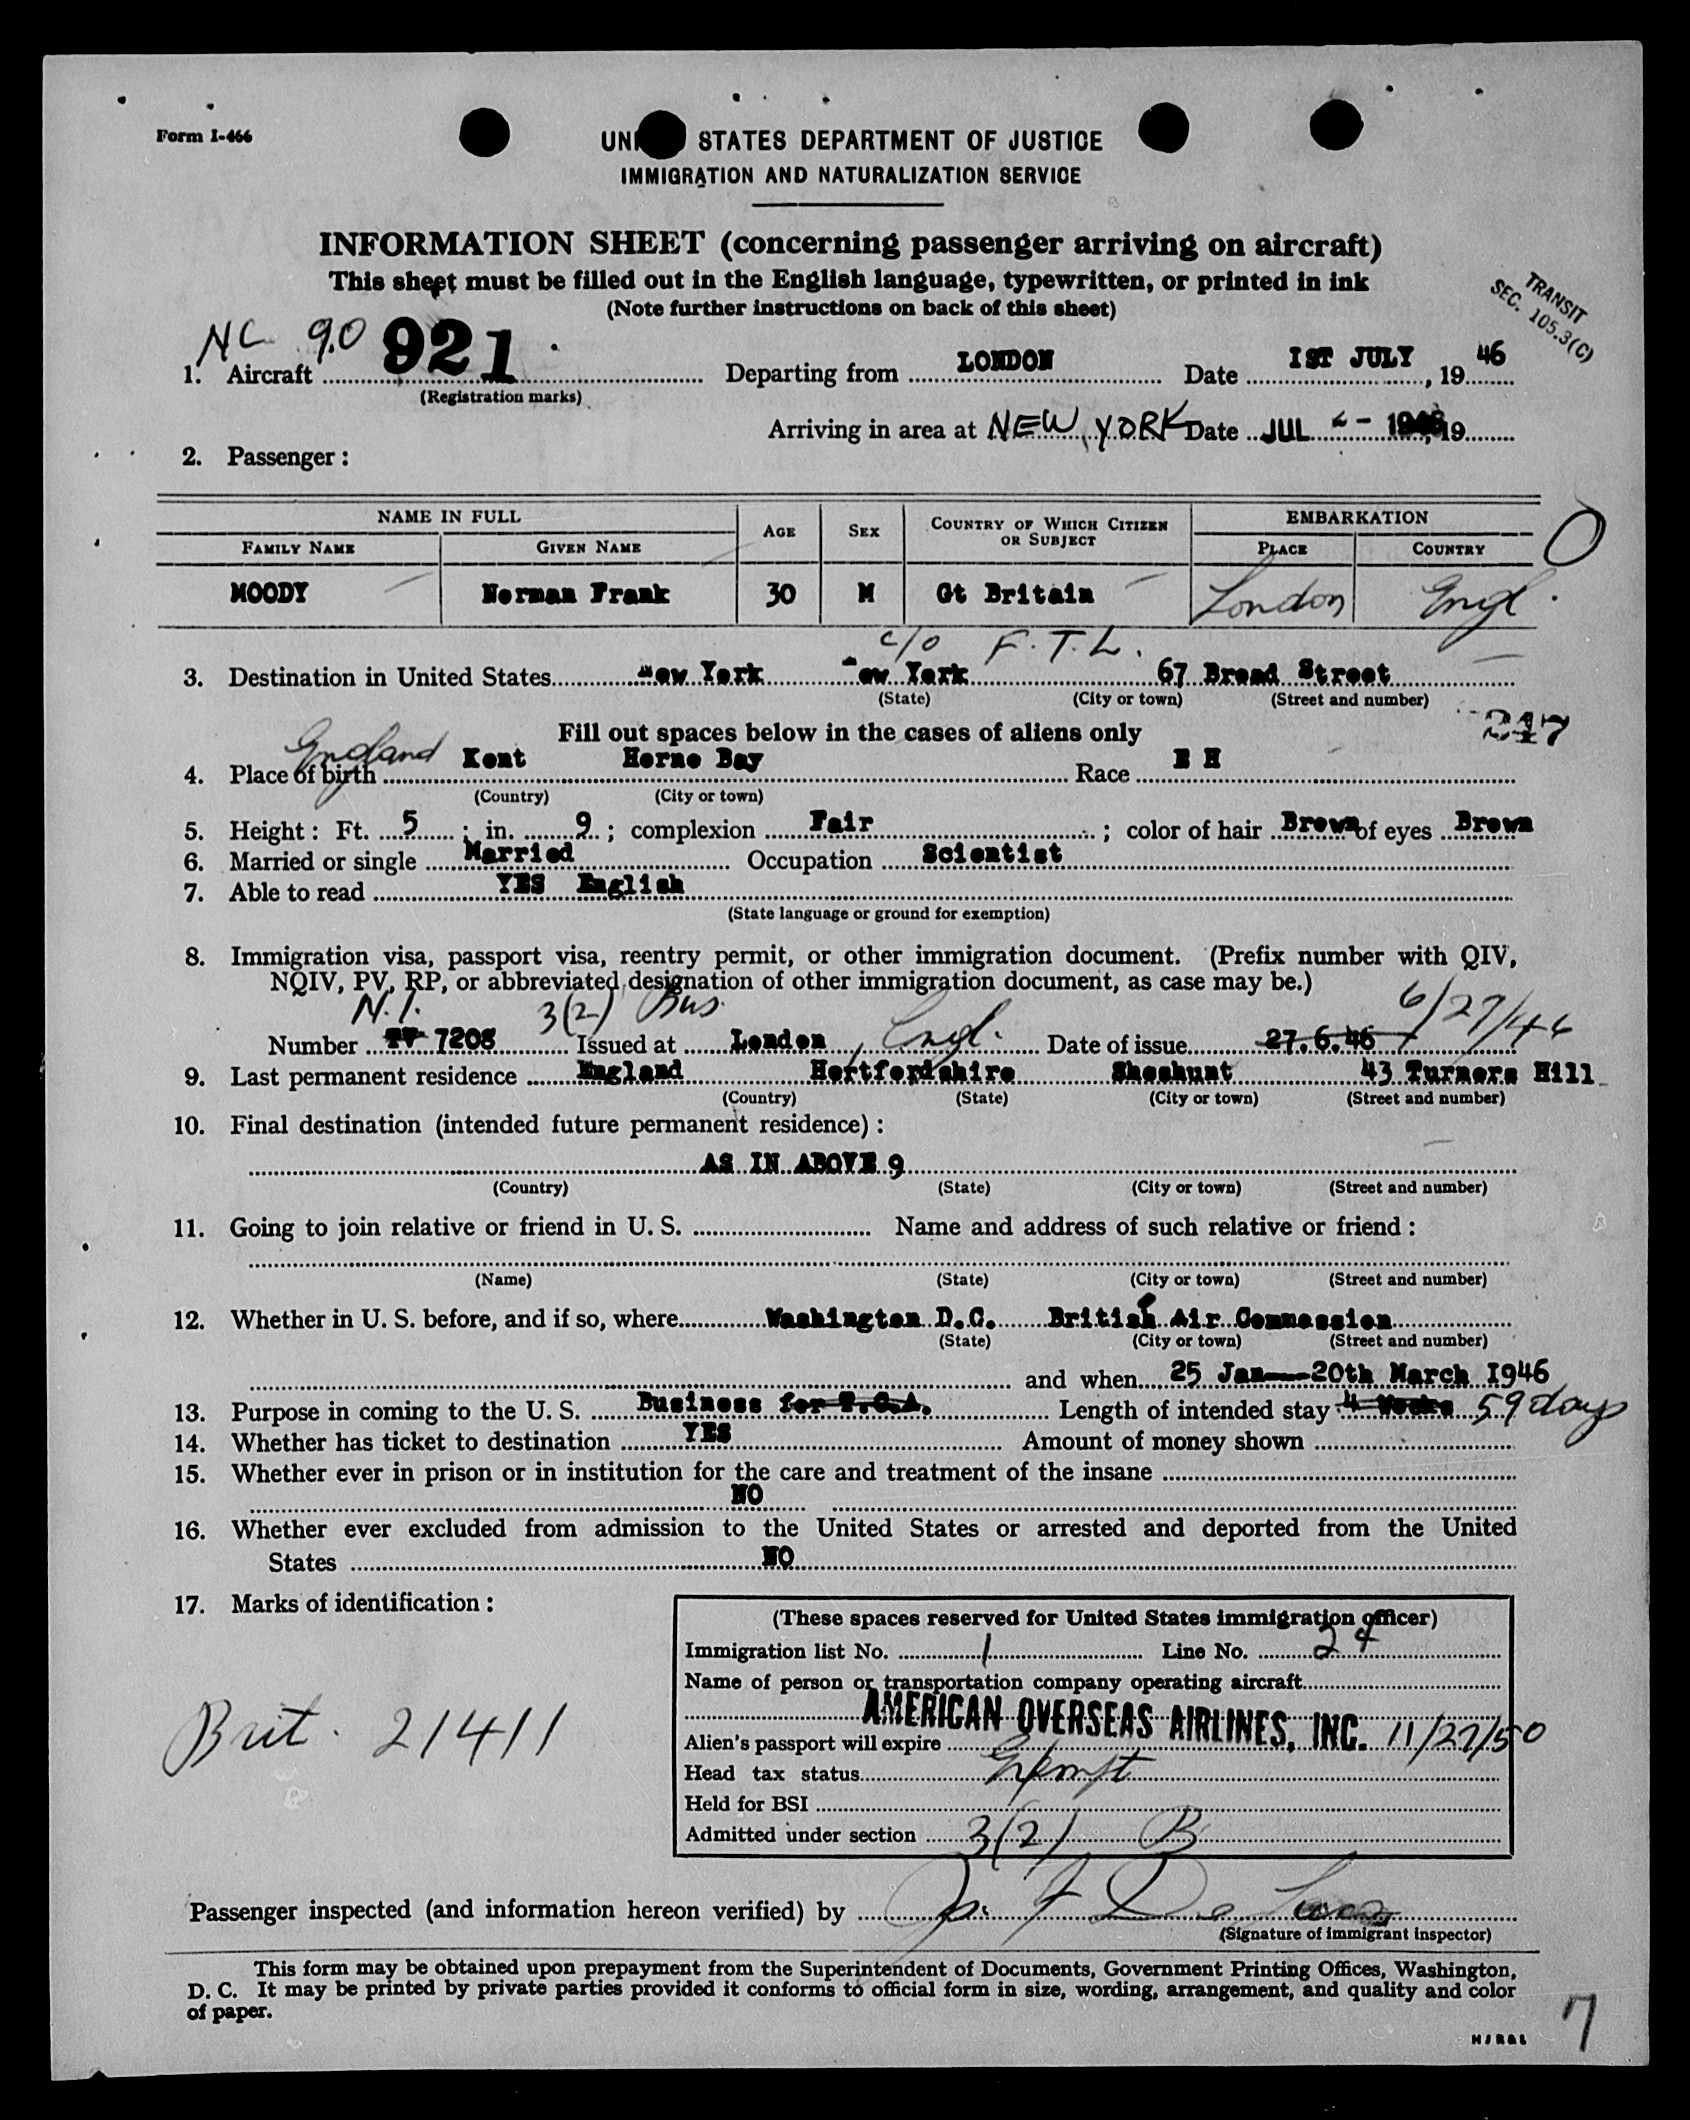 Form I-466
UNI STATES DEPARTMENT OF JUSTICE
IMMIGRATION AND NATURALIZATION SERVICE
INFORMATION SHEET (concerning passenger arriving on aircraft)
This sheet must be filled out in the English language, typewritten, or printed in ink
(Note further instructions on back of this sheet)
TRANSIT
SEC. 105.3(C)
1. Aircraft NC 90 921 Departing from LONDON Date IST JULY, 1946
(Registration marks)
Arriving in area at NEW YORK Date JUL 2 - 1946, 19
2. Passenger:
NAME IN FULL AGE SEX COUNTRY OF WHICH CITIZEN OR SUBJECT EMBARKATION
FAMILY NAME GIVEN NAME PLACE COUNTRY
MOODY Norman Frank 30 M Gt Britain London Engl.
c/o F.T.L.
3. Destination in United States New York New York 67 Broad Street
(State) (City or town) (Street and number)
Fill out spaces below in the cases of aliens only
247
4. Place of birth England Kent Herne Bay Race E H
(Country) (City or town)
5. Height: Ft. 5; in. 9; complexion Fair; color of hair Brown of eyes Brown
6. Married or single Married Occupation Scientist
7. Able to read YES English
(State language or ground for exemption)
8. Immigration visa, passport visa, reentry permit, or other immigration document. (Prefix number with QIV,
NQIV, PV, RP, or abbreviated designation of other immigration document, as case may be.)
N.I. 3(2) Bus. 6/27/46
Number PV 7208 Issued at London, Engl. Date of issue 27.6.46
9. Last permanent residence England Hertfordshire Sheshunt 43 Turners Hill
(Country) (State) (City or town) (Street and number)
10. Final destination (intended future permanent residence):
AS IN ABOVE 9
(Country) (State) (City or town) (Street and number)
11. Going to join relative or friend in U. S. Name and address of such relative or friend:
(Name) (State) (City or town) (Street and number)
12. Whether in U. S. before, and if so, where Washington D.C. British Air Commession
(State) (City or town) (Street and number)
and when 25 Jan--20th March I946
13. Purpose in coming to the U. S. Business for T.C.A. Length of intended stay 4 Weeks 59 days
14. Whether has ticket to destination YES Amount of money shown
15. Whether ever in prison or in institution for the care and treatment of the insane
NO
16. Whether ever excluded from admission to the United States or arrested and deported from the United
States NO
17. Marks of identification:
Brit. 21411
(These spaces reserved for United States immigration officer)
Immigration list No. 1 Line No. 24
Name of person or transportation company operating aircraft
AMERICAN OVERSEAS AIRLINES, INC.
Alien's passport will expire 11/27/50
Head tax status Exempt
Held for BSI
Admitted under section 3(2) B
Passenger inspected (and information hereon verified) by
(Signature of immigrant inspector)
This form may be obtained upon prepayment from the Superintendent of Documents, Government Printing Offices, Washington,
D. C. It may be printed by private parties provided it conforms to official form in size, wording, arrangement, and quality and color
of paper.
7